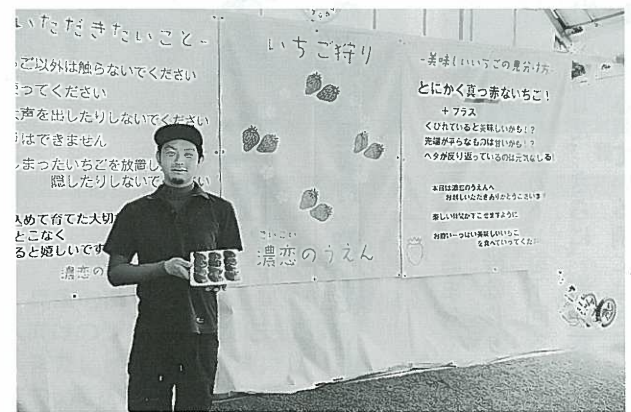 いただきたいこと-
ご以外は触らないでください
ってください
声を出したりしないでください
はできません
しまったいちごを放置し
隠したりしないで
込めて育てた大切
とこなく
ると嬉しいです
濃恋の
いちご狩り
こいこい
濃恋のうえん
-美味しいいちごの見分け方-
とにかく真っ赤ないちご！
+プラス
くびれていると美味しいかも!?
先端が平らなものは甘いかも!?
ヘタが反り返っているのは元気なしるし
本日は濃恋のうえんへ
お越しいただきありがとうございます
楽しい時間がすごせますように
お腹いっぱい美味しいいちご
を食べていってくだ